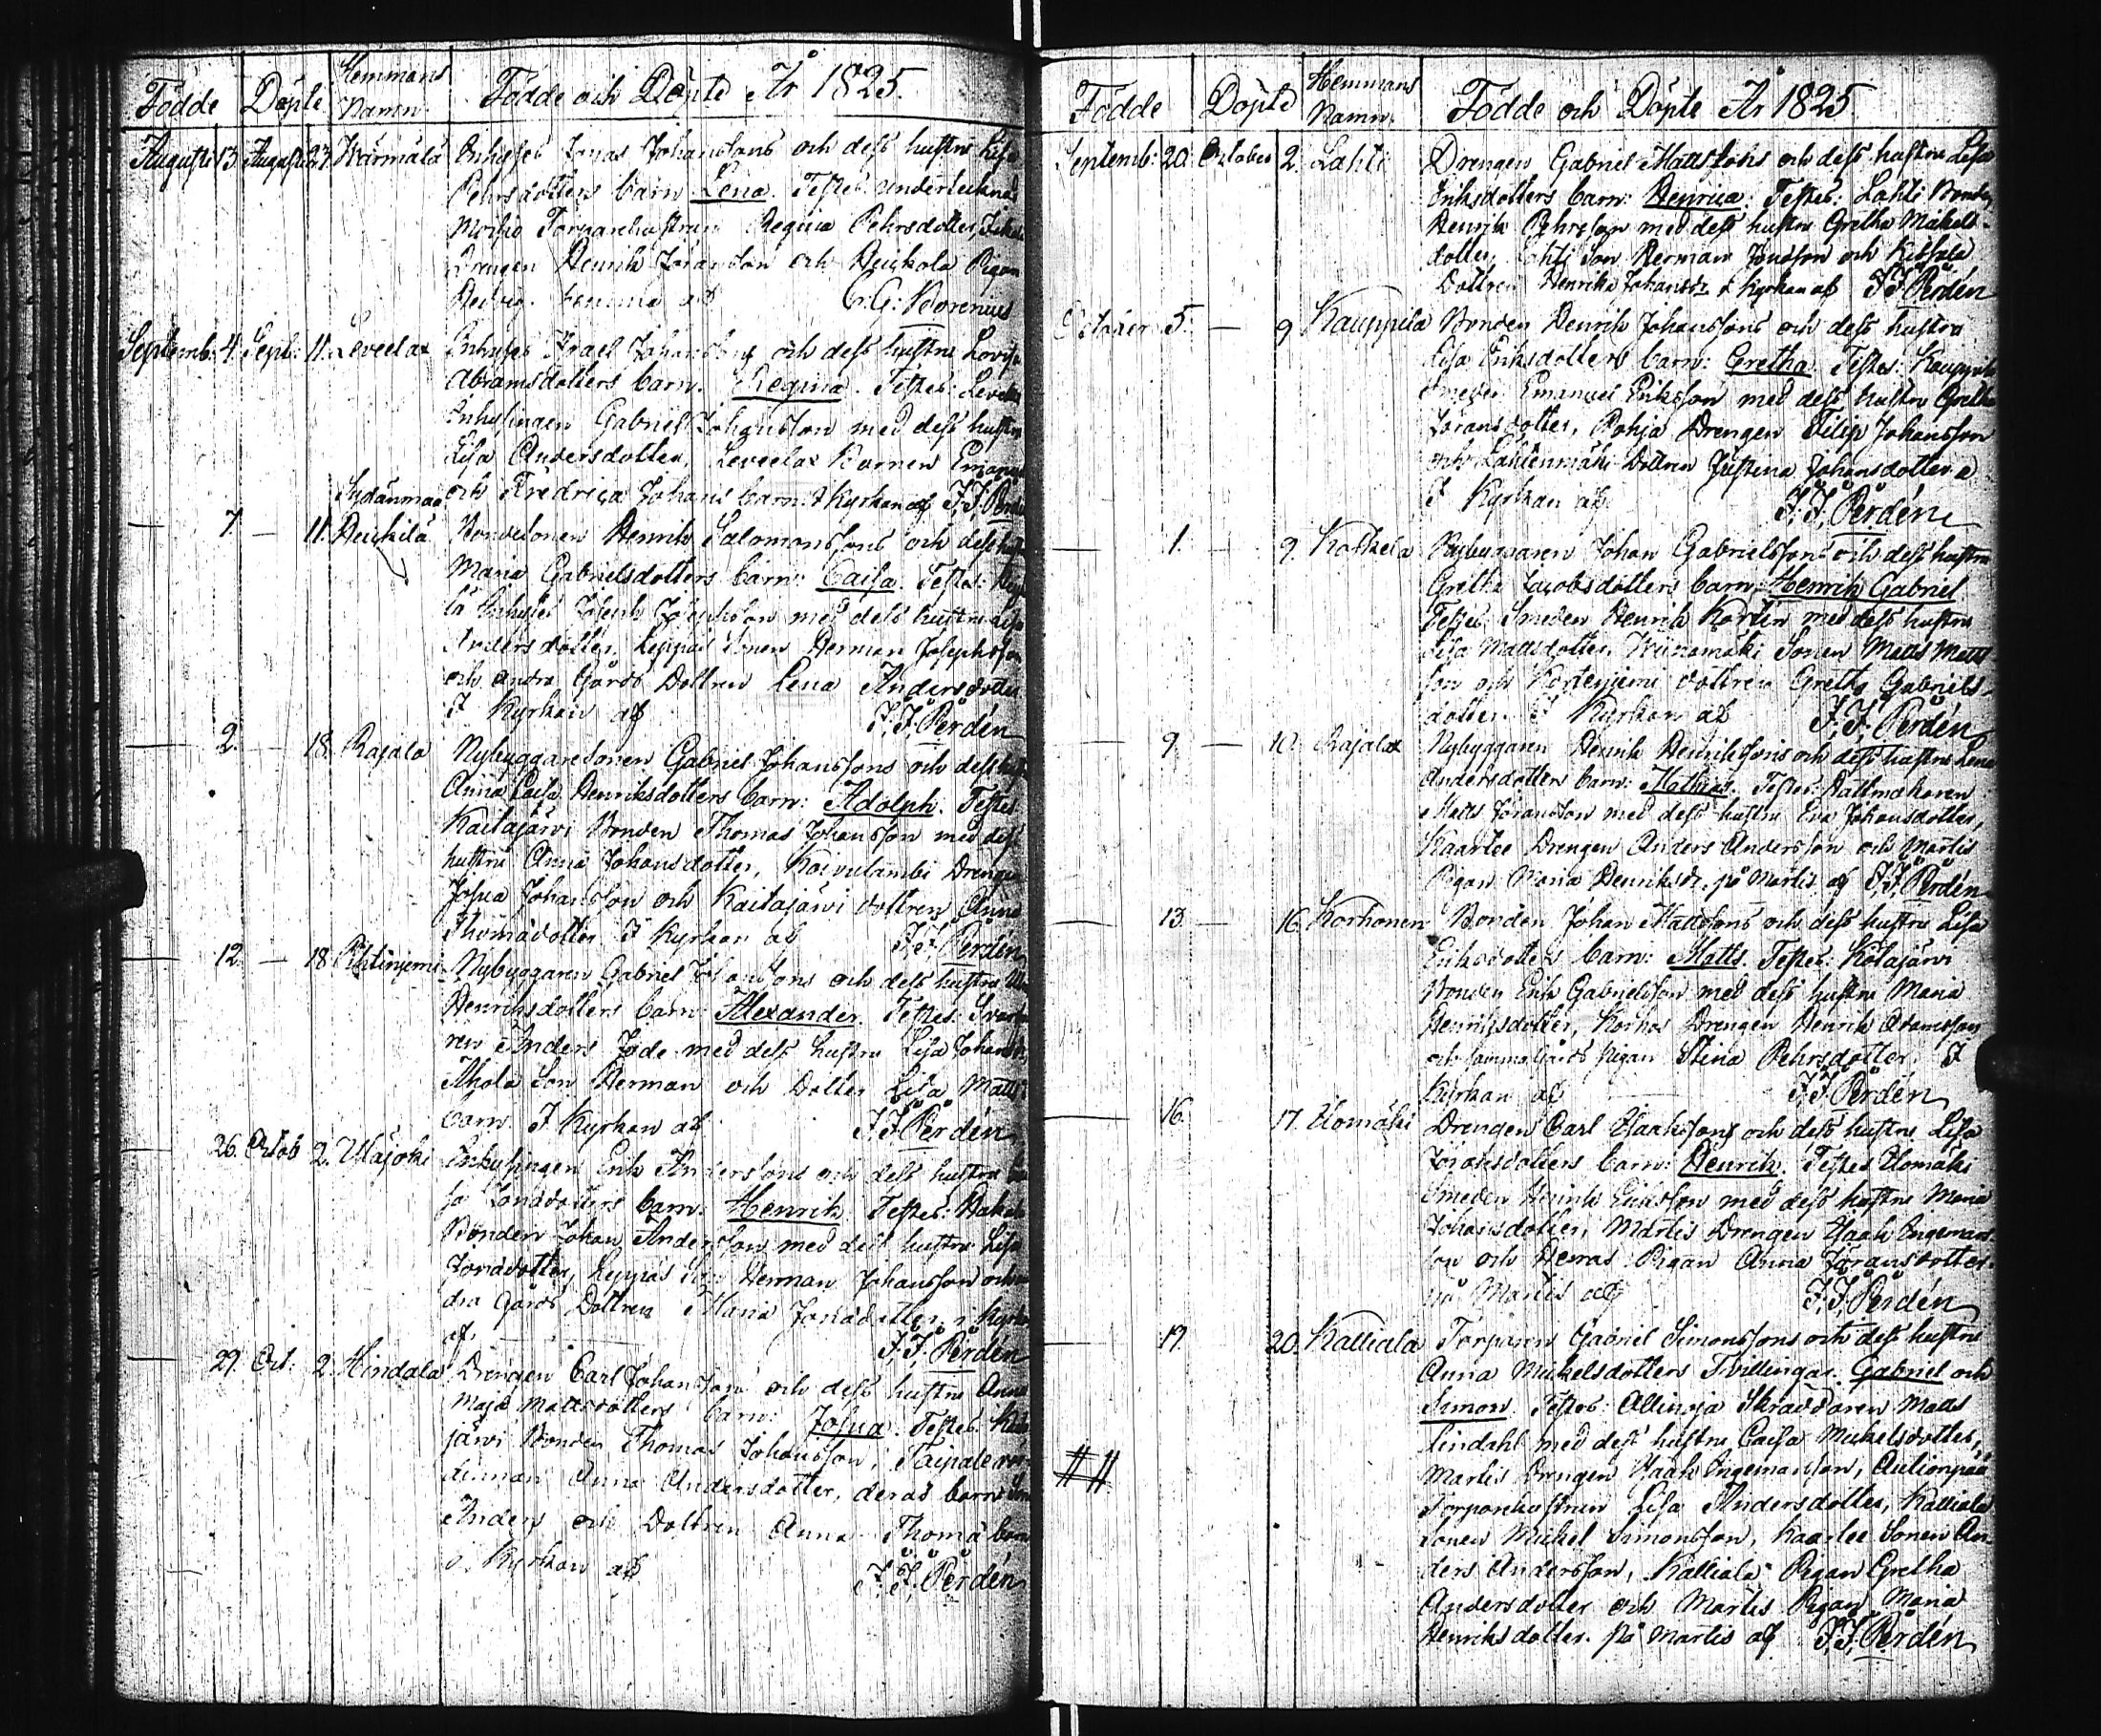 Födde Döpte Hemmans Namn Födde och Döpte År 1825.
Augusti 13. Augusti 27. Wärmälä Inhyses Jonas Johanssons och dess hustru Lisa
Pehrsdotters barn Lena. Testes: underteknad
Moisio Torparehustrun Regina Pehrsdotter,
Drengen Henrik Jöransson och Heickola Pigan
Hedvig C. G. Borenius
Septemb: 4. Septb: 11. Leveelax Inhyses Israel Johanssons och dess hustru Lovisa
Abramsdotters barn: Regina. Testes:
Inhysingen Gabriel Johansson med dess hustru
Lisa Andersdotter, Leveelax Barnen Emanuel
och Fredrica Johans barn. I Kyrkan af J. J. Perdén
— 7. — 11. Sydänmaa Heickilä Bondesonen Henrik Salomonssons och dess hustru
Maria Gabrielsdotters barn: Caisa. Testes:
lä Inhyses Joseph Josephsson med dess hustru Lisa
Andersdotter, Leppäs Sonen Herman Josephsson
och andra Gårds Dottren Lena Andersdotter
I Kyrkan af J. J. Perdén
— 2. — 18. Rajala Nybyggaresonen Gabriel Johanssons och dess hustru
Anna Caisa Henriksdotters barn: Adolph. Testes
Kaitajärvi Bonden Thomas Johansson med dess
hustru Anna Johansdotter, Koivulambi Drengen
Josua Johansson och Kaitajärvi dottren Anna
Thomadotter I Kyrkan af J. J. Perdén
— 12. — 18. Nybyggaren Gabriel Johanssons och dess hustru
Henriksdotters barn: Alexander. Testes:
ren Anders Jode med dess hustru Lisa Johansdr,
Ahola Son Herman och Dotter Lisa Matts
barn. I Kyrkan af J. J. Perdén
26. Octob 2. Ulajoki Inhysingen Erik Anderssons och dess hustru
sa Jonadotters barn. Henrik. Testes:
Bonden Johan Andersson med dess hustru Lisa
Jonadotter, Leppäs Son Herman Johansson och
dra Gårds Dottren Maria Jonadotter, i Kyrkan
af. J. J. Perdén
— 29. Oct: 2. Hindala Drengen Carl Johanssons och dess hustru Anna
Maja Mattsdotters barn: Josua. Testes:
järvi Bonden Thomas Johansson,
Anna Andersdotter, deras barn
Anders och Dottren Anna Thomä barn
i Kyrkan af J. J. Perdén
Födde Döpte Hemmans Namn. Födde och Döpte År 1825.
Septemb: 20. October 2. Lahti Drengen Gabriel Mattssons och dess hustru Lisa
Eriksdotters barn: Henrica. Testes: Lahti Bonden
Henrik Pehrsson med dess hustru Gretha Mickels-
dotter, Lahti Son Herman Jonasson och
Dottren Henrika Johansdr i Kyrkan af J J Perdén
October 5. — 9 Kauppila Bonden Henrik Johanssons och dess hustru
Lisa Eriksdotters barn: Gretha. Testes: Kauppila
Smeden Emanuel Eriksson med dess hustru Gretha
Jöransdotter, Pohja Drengen Filip Johansson
och Lahtenmäki Dottren Justina Johansdotter
I Kyrkan af J. J. Perdén
— 1. — 9. Koskela Nybyggaren Johan Gabrielssons och dess hustru
Gretha Jacobsdotters barn: Henrik Gabriel.
Testes. Smeden Henrik Kortin med dess hustru
Lisa Mattsdotter, Sonen Matts Matts-
son och Kortenjemi dottren Greta Gabriels-
dotter. I Kyrkan af J. J. Perdén
— 9. — 10. Rajala Nybyggaren Henrik Henrikssons och dess hustru Lena
Andersdotters barn: Mathias. Testes: Hattmakaren
Matts Jöransson med dess hustru Eva Johansdotter,
Kaartee Drengen Anders Andersson och Martis
Pigan Maria Henriksdr. på Martis af J. J. Perdén
— 13. — 16. Korhonen Bonden Johan Mattssons och dess hustru Lisa
Eriksdotters barn: Matts. Testes: Kotajärvi
Bonden Erik Gabrielsson med dess hustru Maria
Henriksdotter, Korhos Drengen Henrik Adamsson
och samma Gårds Pigan Stina Pehrsdotter. I
Kyrkan af J. J. Perdén
— 16. 17. Ulomäki Drengen Carl Isaakssons och dess hustru Lisa
Jöransdotters barn: Henrik. Testes Ulomäki
Smeden Henrik Eriksson med dess hustru Maria
Johansdotter, Martis Drengen Isaak Ingemans-
son och Herras Pigan Anna Jöransdotter.
på Martis af J. J. Perdén
— 17. 20. Kattiala Torparen Gabriel Simonssons och dess hustru
Anna Mickelsdotters Tvillingar. Gabriel och
Simon. Testes: Allinoja Skräddaren Matts
Lindahl med dess hustru Caisa Mickelsdotter,
Martis Drengen Isaak Ingemansson,
Torparehustrun Lisa Andersdotter, Kattiala
sonen Mickel Simonsson, Kaartee Sonen An-
ders Andersson, Kattiala Pigan Gretha
Andersdotter och Martis Pigan Maria
Henriksdotter. på Martis af J. J. Perdén